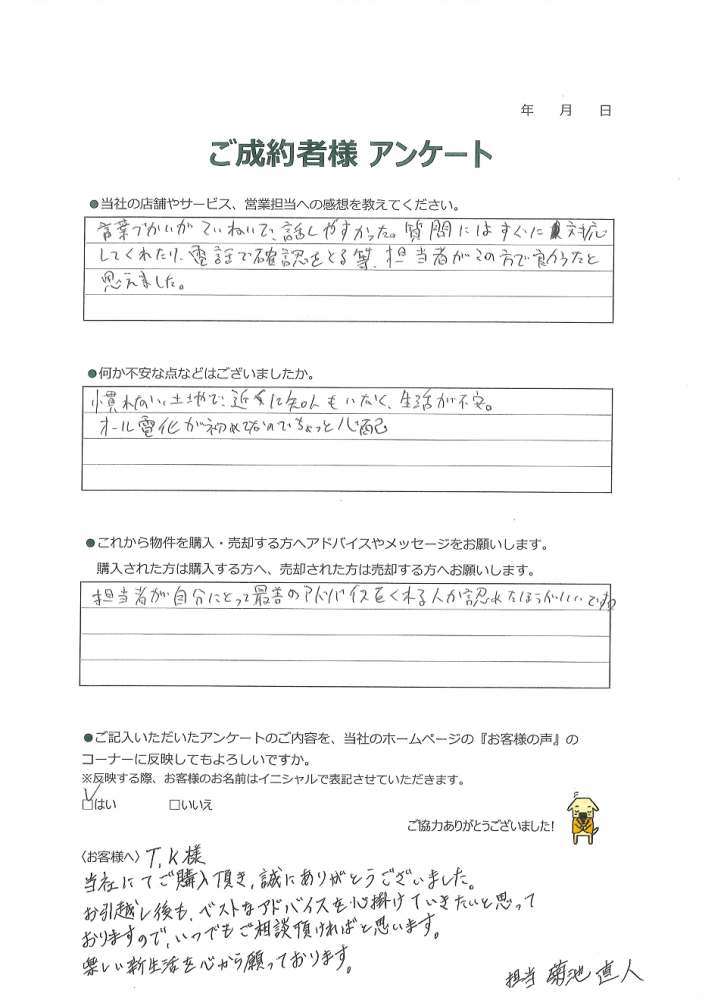 年　月　日
ご成約者様 アンケート
●当社の店舗やサービス、営業担当への感想を教えてください。
言葉づかいがていねいで、話しやすかった。質問にはすぐに対応
してくれたり、電話で確認をとる等、担当者がこの方で良かったと
思えました。
●何か不安な点などはございましたか。
慣れない土地で、近くに知人もいなく、生活が不安。
オール電化が初めてなのでちょっと心配
●これから物件を購入・売却する方へアドバイスやメッセージをお願いします。
購入された方は購入する方へ、売却された方は売却する方へお願いします。
担当者が自分にとって最善のアドバイスをくれる人か認れたほうがいいですね
●ご記入いただいたアンケートのご内容を、当社のホームページの『お客様の声』の
コーナーに反映してもよろしいですか。
※反映する際、お客様のお名前はイニシャルで表記させていただきます。
☑はい　□いいえ
ご協力ありがとうございました!
〈お客様へ〉T,K様
当社にてご購入頂き、誠にありがとうございました。
お引越し後も、ベストなアドバイスを心掛けていきたいと思って
おりますので、いつでもご相談頂ければと思います。
楽しい新生活を心から願っております。
担当 菊池 直人